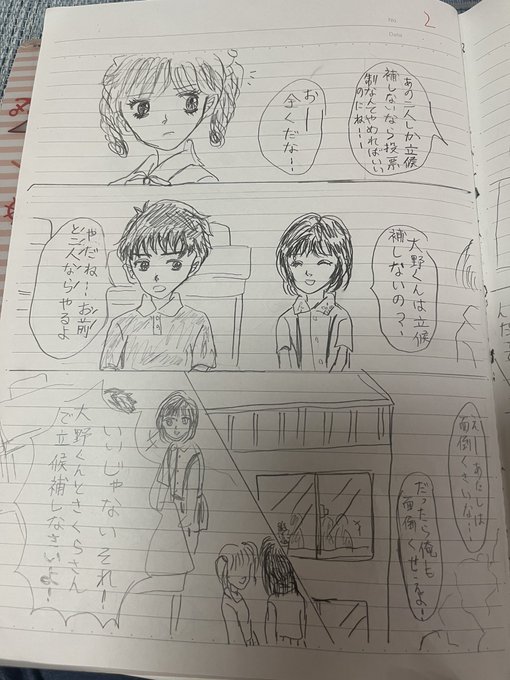 No.
Date
2
あの二人しか立候
補しないなら投票
制なんてやめればいい
のにねーー
おー
全くだな!
大野くんは立候
補しないの?
やだね! お前
と二人ならやるよ
えーあたしは
面倒くさいな!
だったら俺も
面倒くせーよ!
いいじゃないそれ!
大野くんとさくらさん
で立候補しなさいよ!